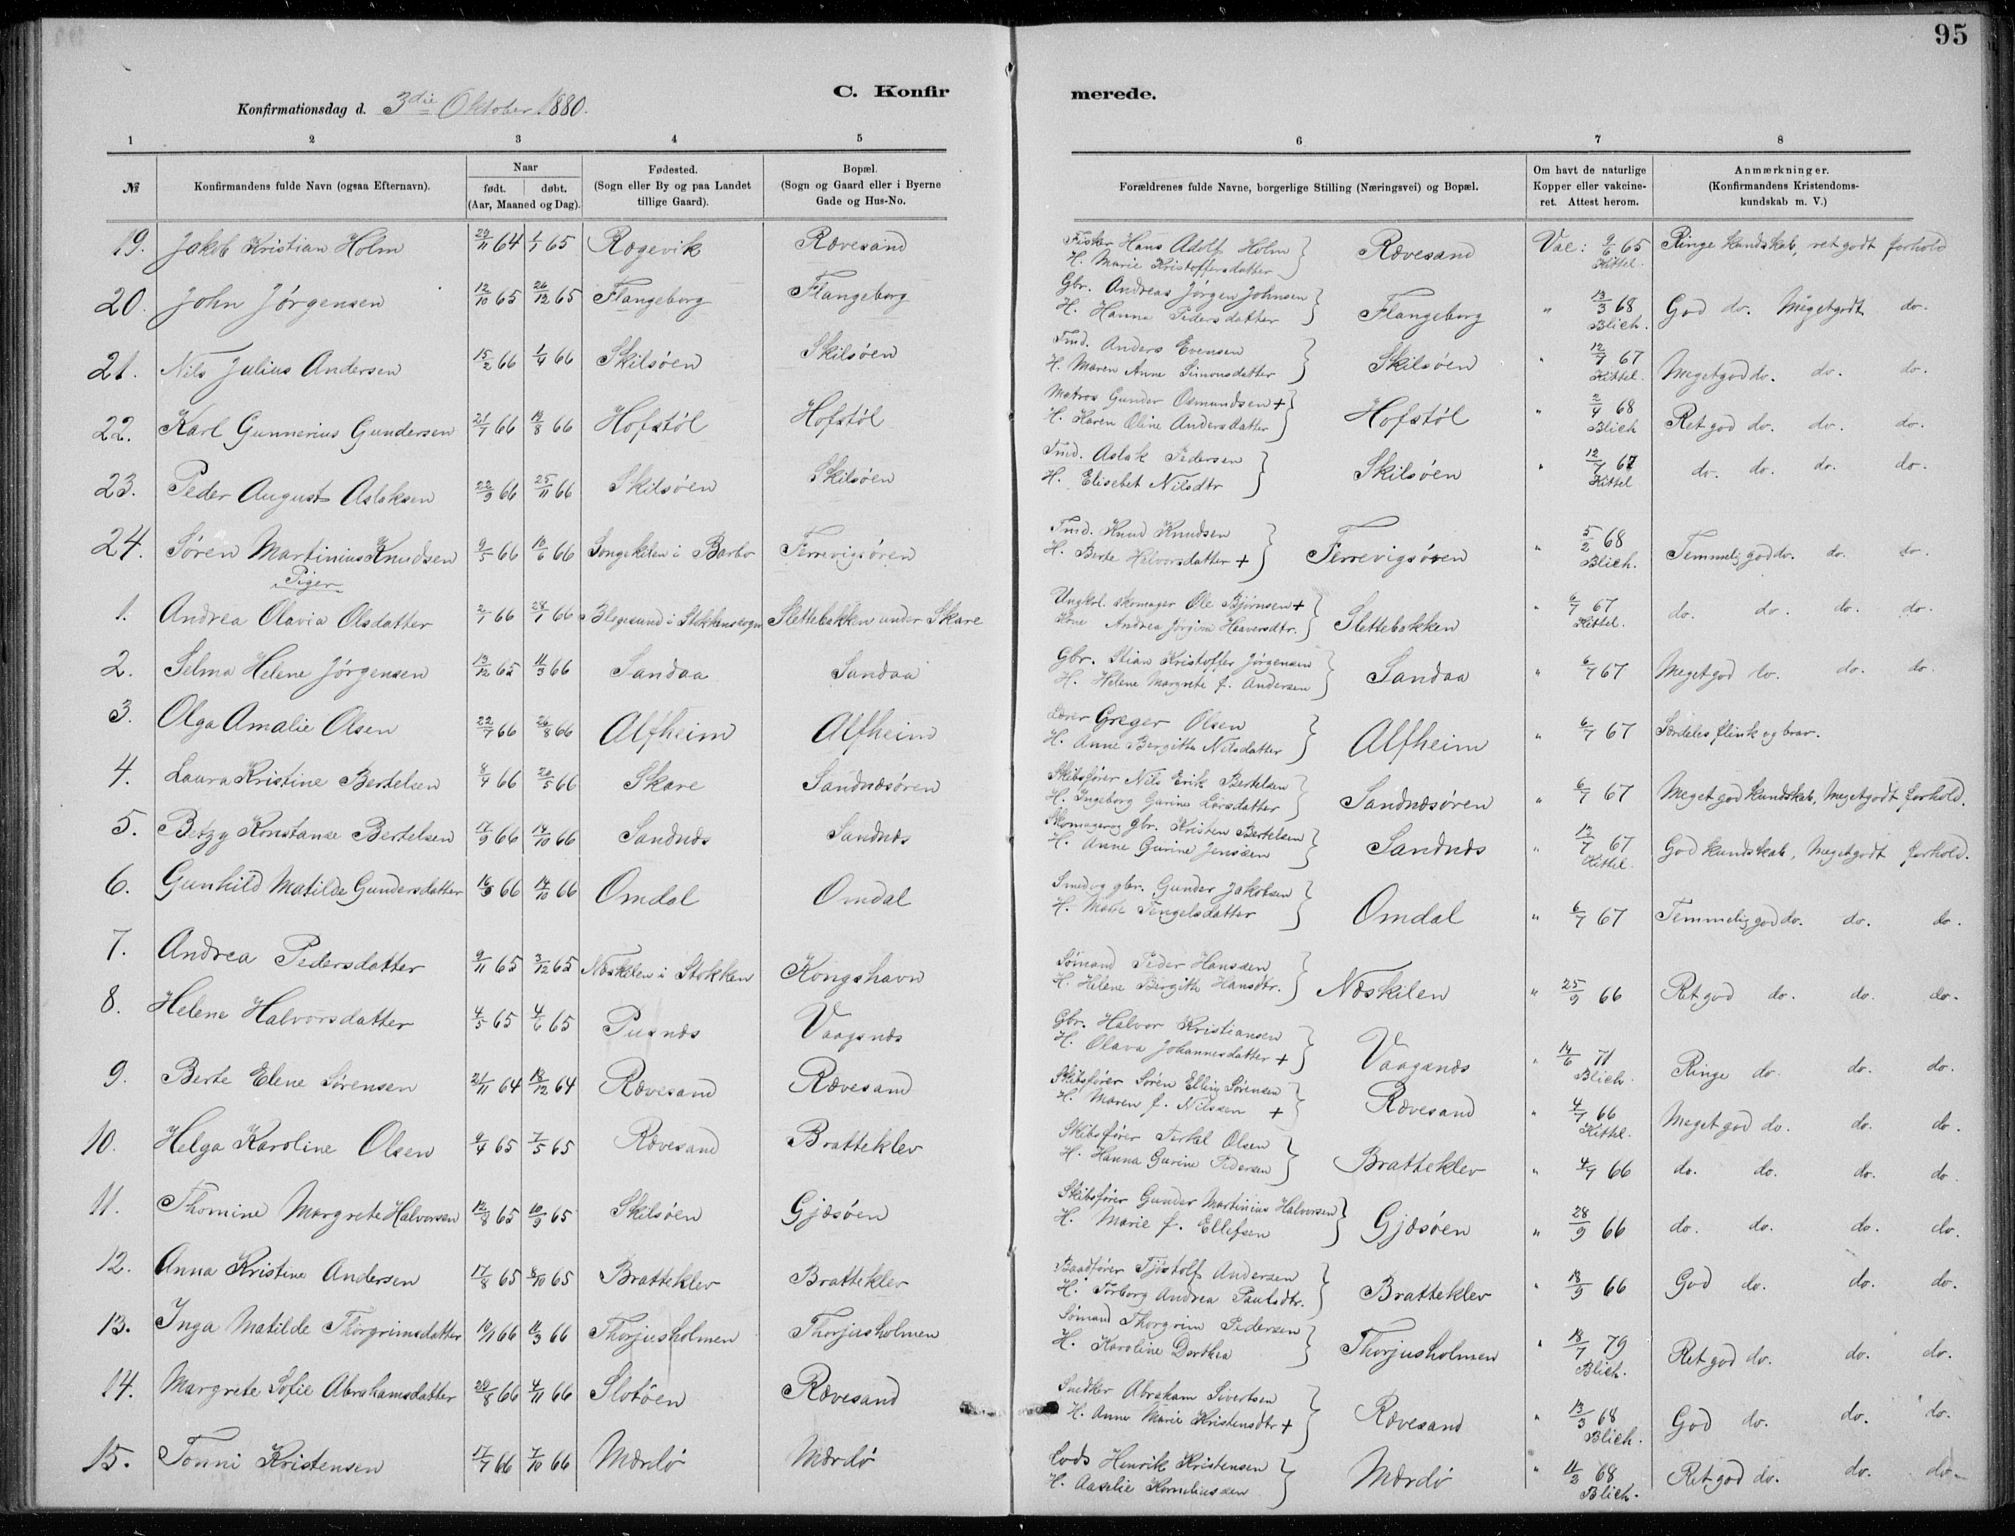 95
C. Konfirmerede.
Konfirmationsdag d. 3die Oktober 1880.
1 2 3 4 5 6 7 8
№ Konfirmandens fulde Navn (ogsaa Efternavn). Naar født. døbt. (Aar, Maaned og Dag). Fødested. (Sogn eller By og paa Landet tillige Gaard). Bopæl. (Sogn og Gaard eller i Byerne Gade og Hus-No. Forældrenes fulde Navne, borgerlige Stilling (Næringsvei) og Bopæl. Om havt de naturlige Kopper eller vakcineret. Attest herom. Anmærkninger. (Konfirmandens Kristendomskundskab m. V.)
19. Jakob Kristian Holm 29/11 64 1/1 65 Rægevik Rævesand Fisker Hans Adolf Holm H. Marie Kristoffersdatter } Rævesand Vac: 9/6 65 Kittel. Ringe kundskab, ret godt forhold
20. John Jørgensen 12/10 65 26/12 65 Flangeborg Flangeborg Gbr. Andreas Jørgen Johnsen H. Hanna Pedersdatter } Flangeborg " 13/3 68 Blich. God do. Meget godt do.
21. Nils Julius Andersen 15/2 66 1/4 66 Skilsøen Skilsøen Tmd. Anders Evensen H. Maren Anne Simonsdatter } Skilsøen " 12/7 67 Kittel. Meget god do. do. do.
22. Karl Gunnerius Gundersen 21/7 66 19/8 66 Hofstøl Hofstøl Matros Gunder Osmundsen + H. Karen Oline Andersdatter } Hofstøl " 2/4 68 Blich Ret god do. do. do.
23. Peder August Aslaksen 22/9 66 25/11 66 Skilsøen Skilsøen Tmd. Aslak Pedersen H. Elisebet Nilsdtr } Skilsøen " 12/7 67 Kittel do. do. do. do.
24. Søren Martinius Knudsen 9/5 66 10/6 66 Songekilen i Barbo Terrevigsøren Tmd. Knud Knudsen H. Berte Halvorsdatter + } Terrevigsøren " 5/2 68 Blich. Temmelig god do. do. do.
Piger
1. Andrea Olavia Olsdatter 2/7 66 28/7 66 i Stokkensogn Slettebakken under Skare Ungkrl. skomager Ole Bjørnsen + Andrea Jørgine } Slettebakken " 6/7 67 Kittel. do. do. do. do.
2. Selma Helene Jørgensen 13/12 65 11/3 66 Sandaa Sandaa Gbr. Stian Kristoffer Jørgensen H. Helene Margrete f. Andersen } Sandaa " 6/7 67 Meget god do. do. do.
3. Olga Amalie Olsen 22/7 66 26/8 66 Alfheim Alfheim Lærer Greger Olsen H. Anne Bergitte Nilsdatter } Alfheim " 6/7 67 Særdeles flink og brav.
4. Laura Kristine Bertelsen 8/4 66 20/5 66 Skare Sandnæsøren Skibsfører Nils Erik Bertelsen H. Ingeborg Gurine Larsdatter } Sandnæsøren " 6/7 67 Meget god kundskab, Meget godt forhold.
5. Betzy Konstanse Bertelsen 17/9 66 14/10 66 Sandnæs Sandnæs Skomager og gbr. Kristen Bertelsen H. Anne Gurine Jenssen } Sandnæs " 12/7 67 Kittel God kundskab, Meget godt forhold.
6. Gunhild Matilde Gundersdatter 16/9 66 14/10 66 Omdal Omdal Smed og gbr. Gunder Jakobsen H. Tengelsdatter } Omdal " 6/7 67 Temmelig god do. do. do.
7. Andrea Pedersdatter 9/11 65 3/12 65 Næskilen i Stokken Kongshavn Sømand Peder Hanssen H. Helene Birgitte Hansdtr. } Næskilen " 25/9 66 Ret god do. do. do.
8. Helene Halvorsdatter 4/5 65 4/6 65 Pusnæs Vaagsnæs Gbr. Halvor Kristiansen H. Olava Johannesdatter + } Vaagsnæs " 14/6 71 Blich. Ringe do. do. do.
9. Berte Elene Sørensen 21/11 64 18/12 64 Rævesand Rævesand Skibsfører Søren Elling Sørensen H. Maren f. Nilssen + } Rævesand " 4/7 66 Kittel. Meget god do. do. do.
10. Helga Karoline Olsen 9/4 65 7/5 65 Rævesand Bratteklev Skibsfører Terkel Olsen H. Hanna Gurine Pedersen } Bratteklev " 4/7 66 do. do. do. do.
11. Thomine Margrete Halvorsen 12/8 65 10/9 65 Skilsøen Gjøsøen Skibsfører Gunder Martinius Halvorsen H. Marie f. Ellefsen } Gjøsøen " 28/9 66 do. do. do. do.
12. Anna Kristine Andersen 17/8 65 8/10 65 Bratteklev Bratteklev Baadfører Tjøstolf Andersen H. Torborg Andrea Paulsdtr. } Bratteklev " 18/9 66 God do. do. do.
13. Inga Matilde Thorgrimsdatter 10/1 66 11/3 66 Thorjusholmen Thorjusholmen Sømand Thorgrim Pedersen H. Karoline Dorthea } Thorjusholmen " 18/7 79 Blich. Ret god do. do. do.
14. Margrete Sofie Abrahamsdatter 29/8 66 4/11 66 Slotøen Rævesand Snedker Abraham Sivertsen H. Anne Marie Kristensdtr + } Rævesand " 13/3 68 Blich. God do. do. do.
15. Tonni Kristensen 17/7 66 7/10 66 Mærdø Mærdø Lods Henrik Kristensen H. Aaselie Korneliussen } Mærdø " 11/3 68 Blich. Ret god do. do. do.